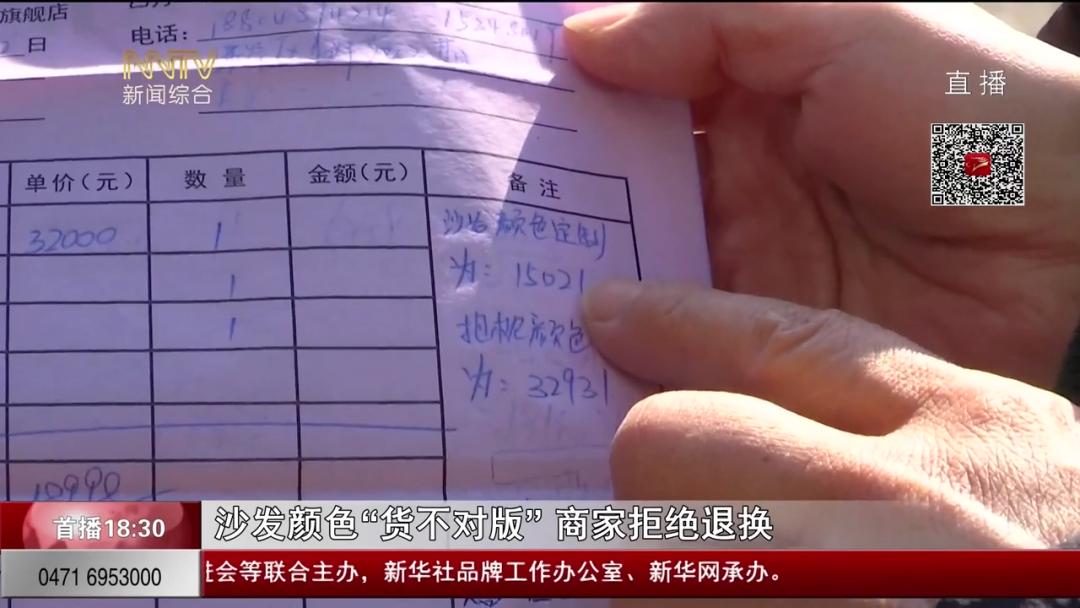 旗舰店
日
电话:
NNTV
新闻综合
直播
单价(元) 数量 金额(元) 备注
32000 1 沙发颜色定制
为: 15021
1
1 抱枕颜色
为: 32931
10990
首播18:30
沙发颜色“货不对版” 商家拒绝退换
0471 6953000
会等联合主办，新华社品牌工作办公室、新华网承办。